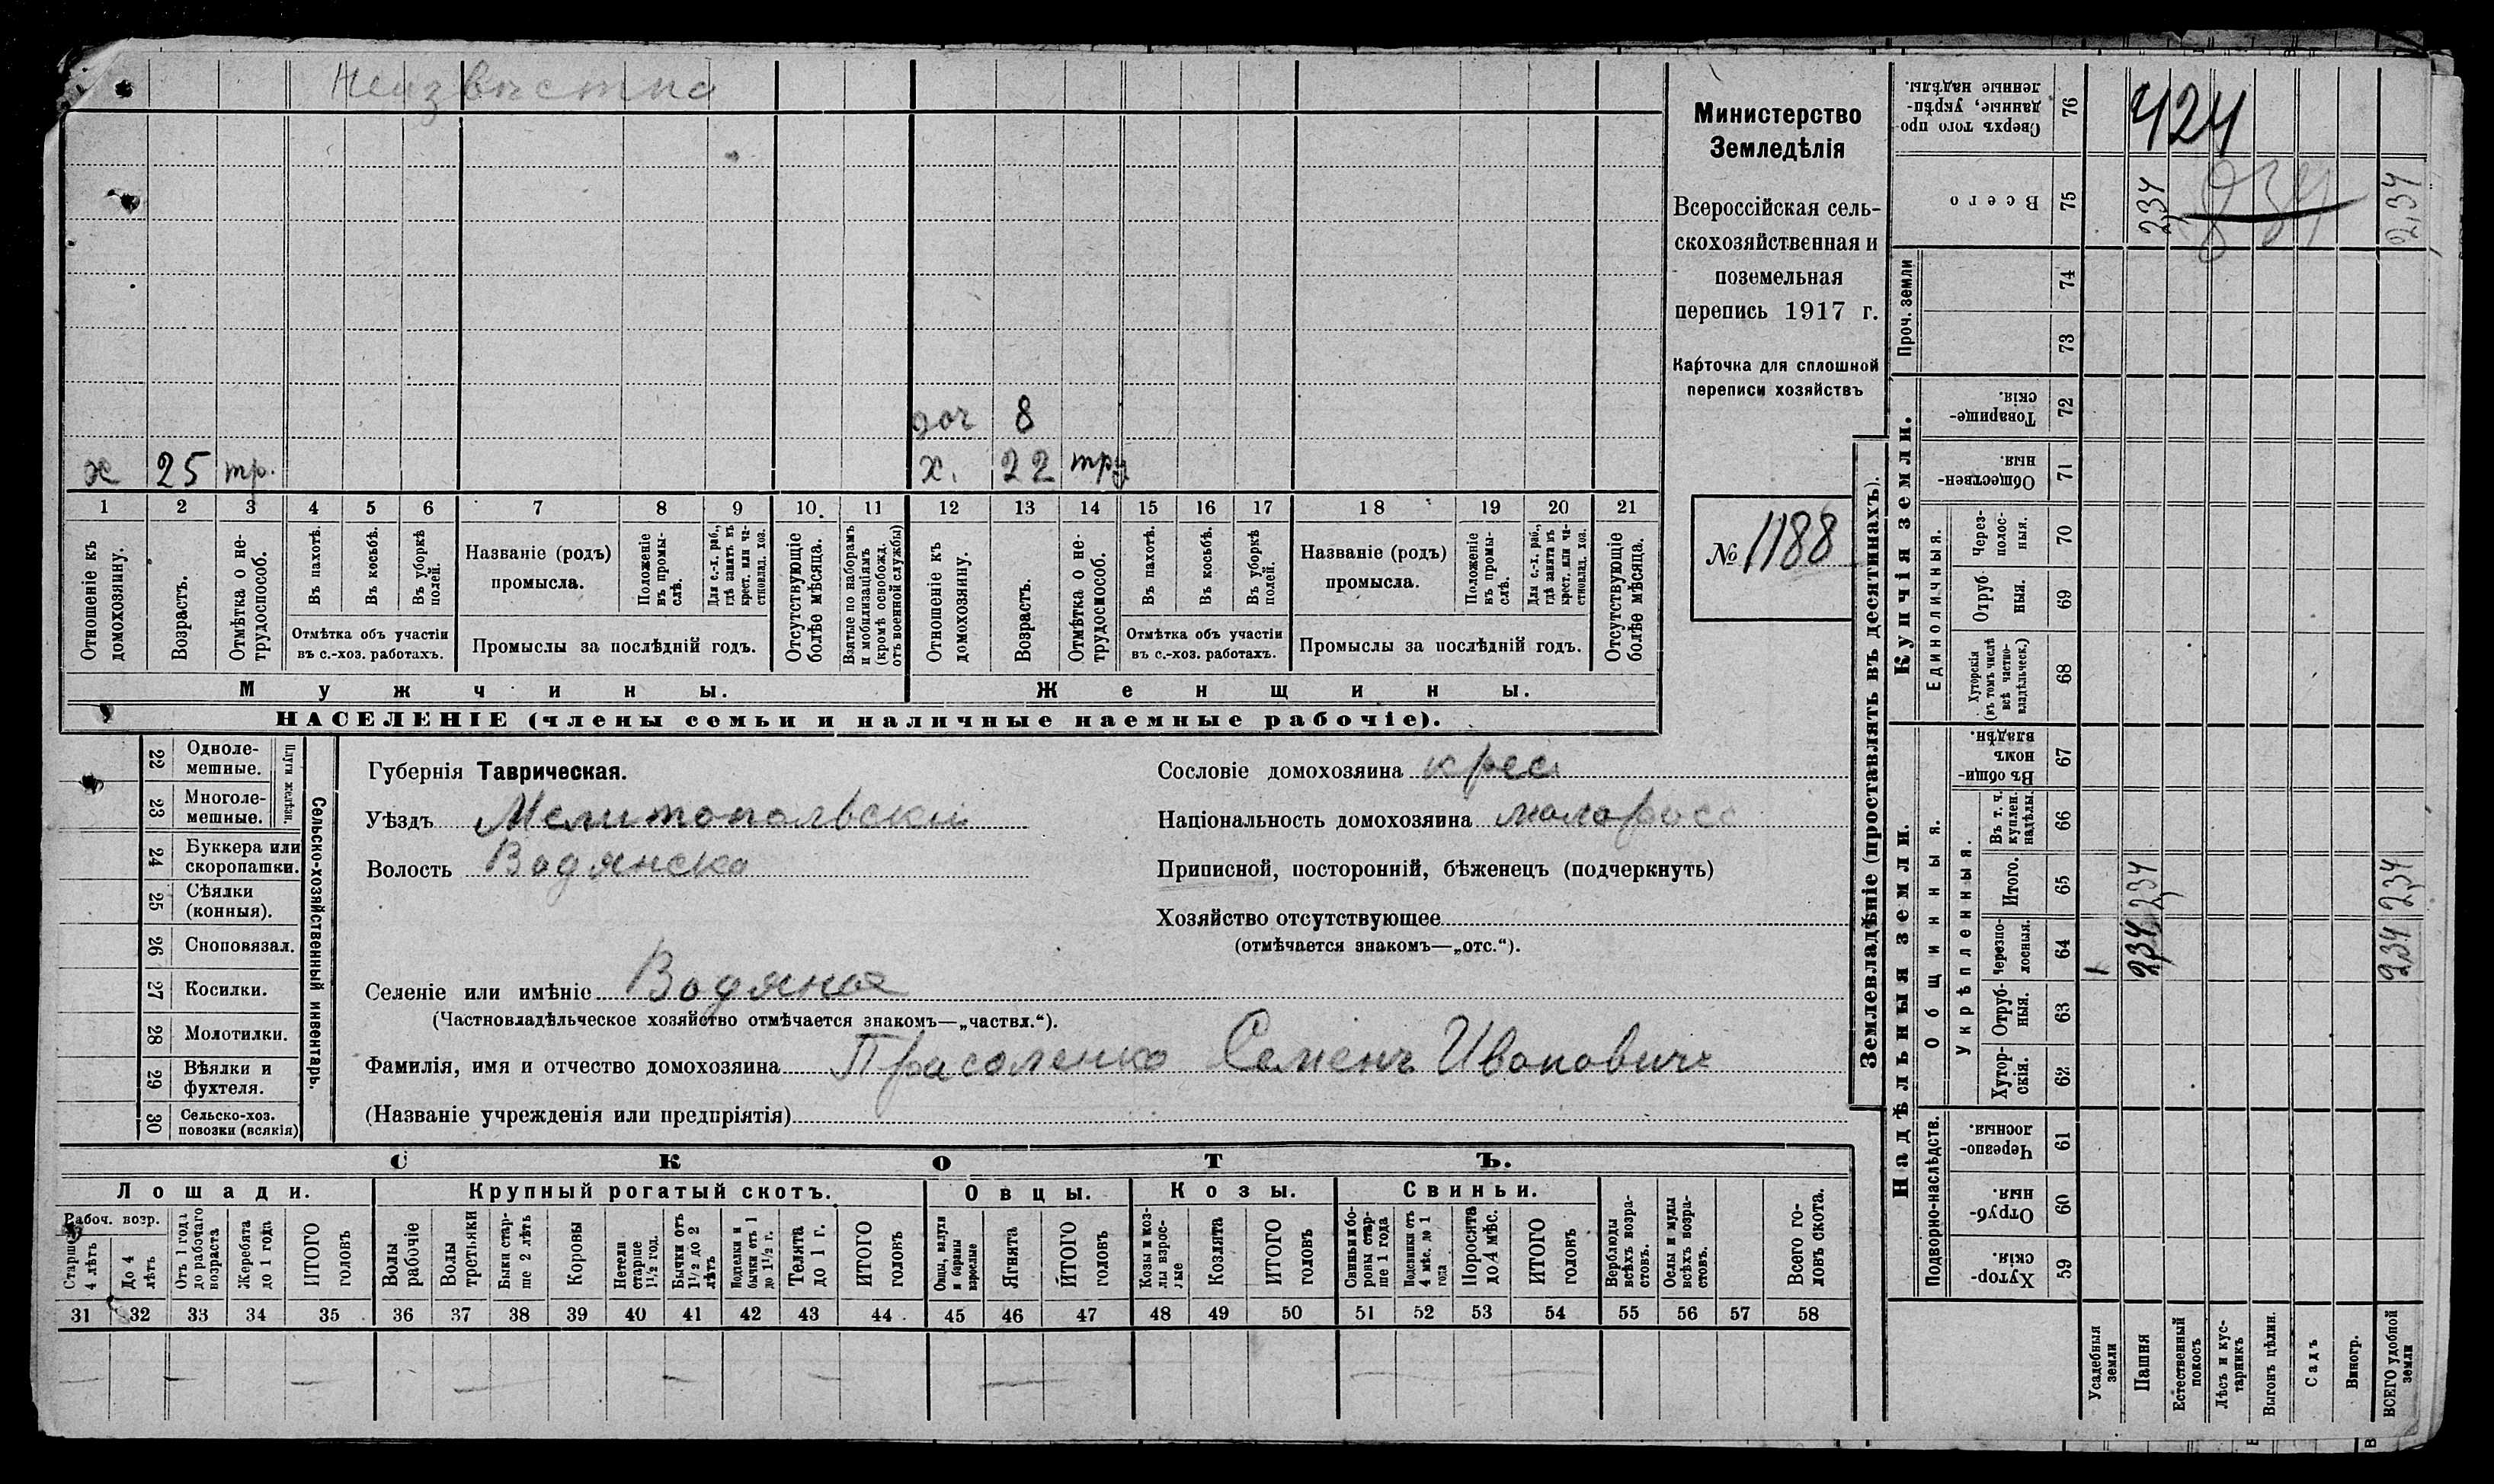 Неизвѣстно
доч 8
х 25 тр. х. 22 тру
1 2 3 4 5 6 7 8 9 10. 11 12 13 14 15 16 17 18 19 20 21
Отношеніе къ домохозяину.
Возрастъ.
Отмѣтка о нетрудоспособ.
Въ пахотѣ.
Въ косьбѣ.
Въ уборкѣ полей.
Отмѣтка объ участіи
въ с.-хоз. работахъ.
Названіе (родъ)
промысла.
Положеніе въ промыслѣ.
Для с.-х. раб., гдѣ занятъ въ крест. или частновлад. хоз.
Промыслы за послѣдній годъ.
Отсутствующіе болѣе мѣсяца.
Взятые по наборамъ и мобилизаціямъ (кромѣ освобожд. отъ военной службы)
Отношеніе къ домохозяину.
Возрастъ.
Отмѣтка о нетрудоспособ.
Въ пахотѣ.
Въ косьбѣ.
Въ уборкѣ полей.
Отмѣтка объ участіи
въ с.-хоз. работахъ.
Названіе (родъ)
промысла.
Положеніе въ промыслѣ.
Для с.-х. раб., гдѣ занята въ крест. или частновлад. хоз.
Промыслы за послѣдній годъ.
Отсутствующіе болѣе мѣсяца.
Мужчины.
Женщины.
НАСЕЛЕНІЕ (члены семьи и наличные наемные рабочіе).
Министерство
Земледѣлія
Всероссійская сель-
скохозяйственная и
поземельная
перепись 1917 г.
Карточка для сплошной
переписи хозяйствъ
№ 1188
22 Одноле-
мешные.
23 Многоле-
мешные.
Плуги желѣзн.
24 Буккера или
скоропашки.
25 Сѣялки
(конныя).
26 Сноповязал.
27 Косилки.
28 Молотилки.
29 Вѣялки и
фухтеля.
30 Сельско-хоз.
повозки (всякія)
Сельско-хозяйственный инвентарь.
Губернія Таврическая.
Уѣздъ Мелитопольскій
Волость Водянско
Селеніе или имѣніе Водяное
(Частновладѣльческое хозяйство отмѣчается знакомъ—„частвл.“).
Фамилія, имя и отчество домохозяина Прасоленко Семенъ Ивановичъ
(Названіе учрежденія или предпріятія)
Сословіе домохозяина крес
Національность домохозяина малоросс
Приписной, посторонній, бѣженецъ (подчеркнуть)
Хозяйство отсутствующее
(отмѣчается знакомъ—„отс.“).
СКОТЪ.
Лошади.
Крупный рогатый скотъ.
Овцы.
Козы.
Свиньи.
Рабоч. возр.
Старше 4 лѣтъ
До 4 лѣтъ
Отъ 1 года до рабочаго возраста
Жеребята до 1 года
ИТОГО головъ
Волы рабочіе
Волы третьяки
Быки старше 2 лѣтъ
Коровы
Нетели старше 1½ год.
Бычки отъ 1½ до 2 лѣтъ
Подтелки и бычки отъ 1 до 1½ г.
Телята до 1 г.
ИТОГО головъ
Овцы, валухи и бараны взрослые
Ягнята
ИТОГО головъ
Козы и козлы взрослые
Козлята
ИТОГО головъ
Свиньи и боровы старше 1 года
Подсвинки отъ 4 мѣс. до 1 года
Поросята до 4 мѣс.
ИТОГО головъ
Верблюды всѣхъ возрастовъ.
Ослы и мулы всѣхъ возрастовъ.
Всего головъ скота.
31 32 33 34 35 36 37 38 39 40 41 42 43 44 45 46 47 48 49 50 51 52 53 54 55 56 57 58
Землевладѣніе (проставлять въ десятинахъ).
Купчія земли.
Надѣльныя земли.
Проч. земли
Единоличныя.
Общинныя.
Укрѣпленныя.
Подворно-наслѣдств.
76 Сверхъ того проданные, укрѣпленные надѣлы.
424
75 Всего
234 834 2,34
74
73
72 Товарищескія.
71 Общественныя.
70 Через-
полос-
ныя.
69 Отруб-
ныя.
68 Хуторскія
(въ томъ числѣ
всѣ частно-
владѣльческ.)
67 Въ общинномъ владѣн.
66 Въ т. ч.
куплен.
надѣлы.
65 Итого.
2,34 2,34
64 Черезпо-
лосныя.
2,34 2,34
63 Отруб-
ныя.
62 Хутор-
скія.
61 Черезпо-
лосныя.
60 Отруб-
ныя.
59 Хутор-
скія.
Усадебныя земли
Пашня
Естественный покосъ
Лѣсъ и кустарникъ
Выгонъ цѣлин.
Садъ
Виногр.
ВСЕГО удобной земли